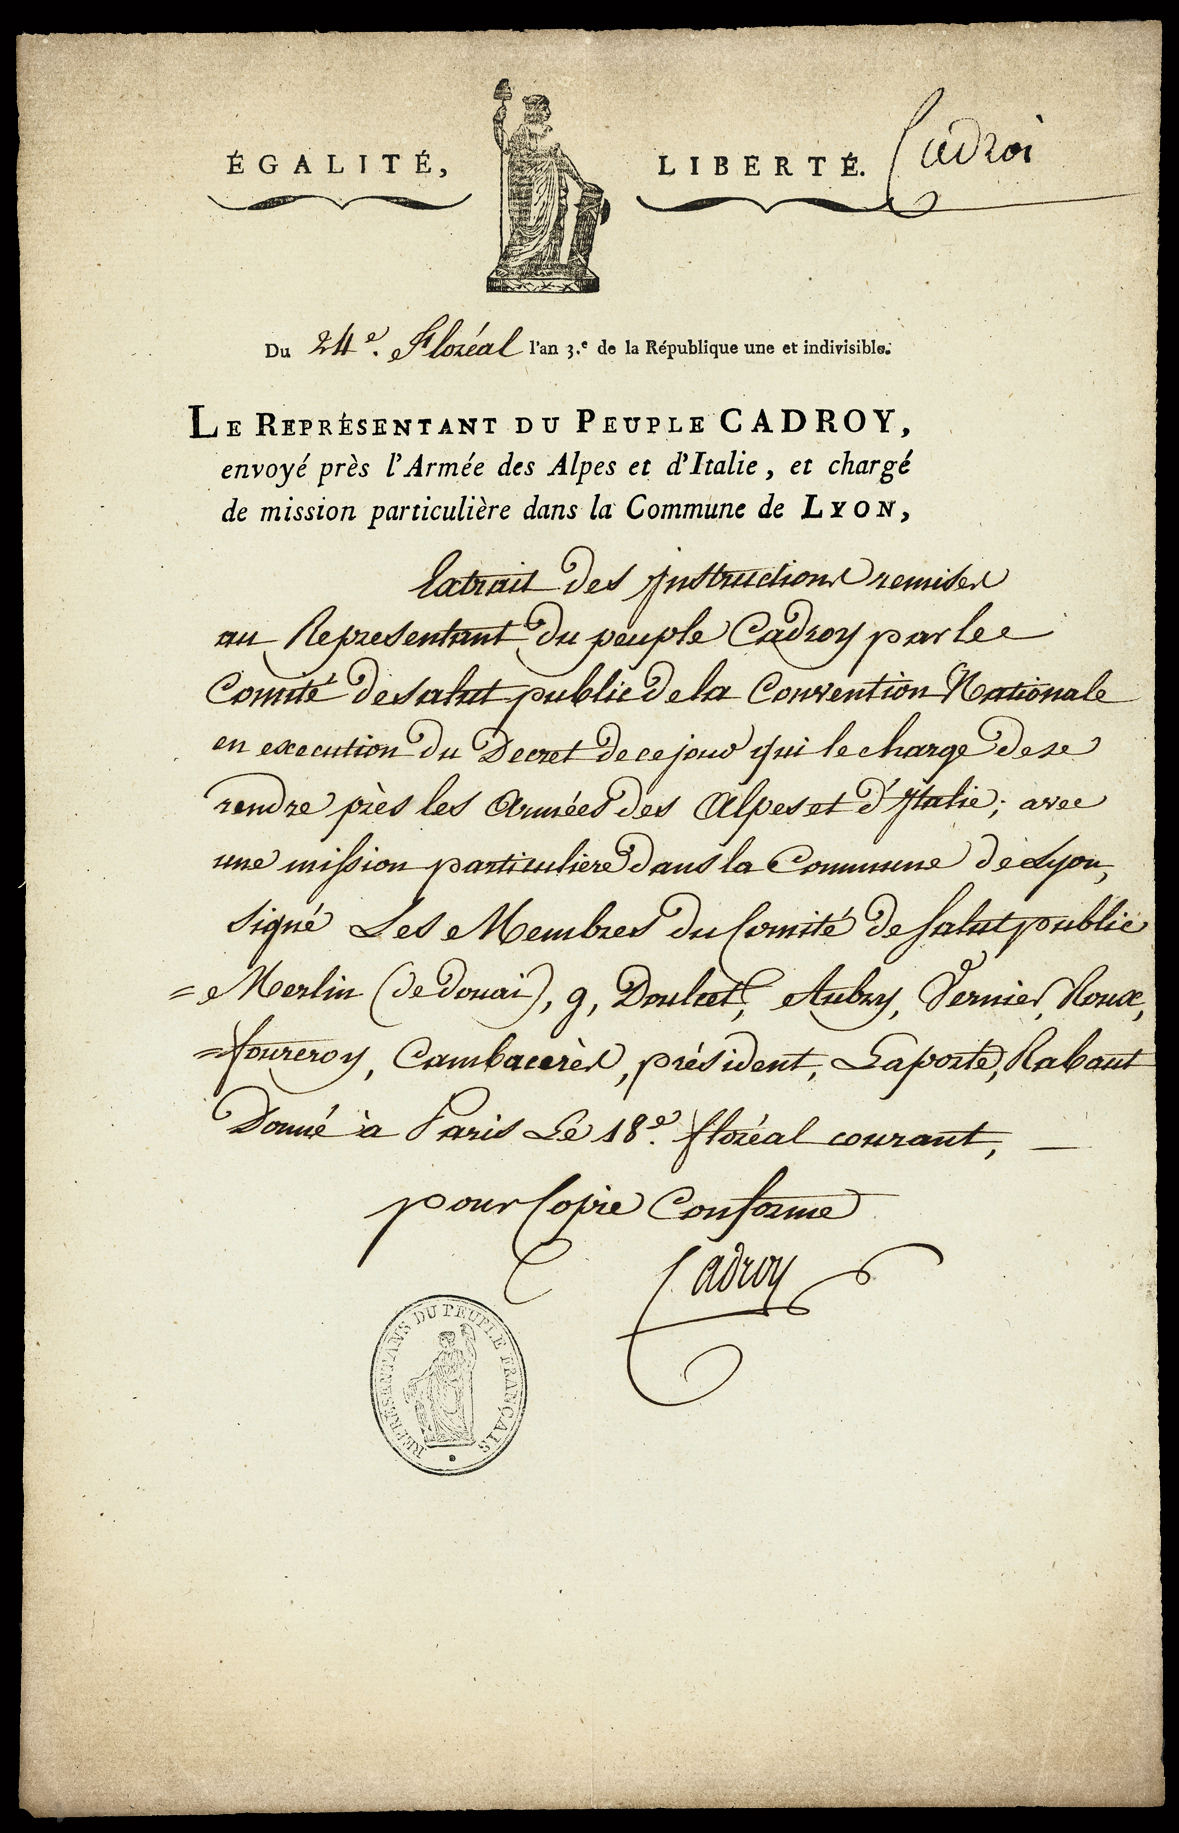 ÉGALITÉ, LIBERTÉ. Cadroi
Du 24e. Floréal l'an 3.e de la République une et indivisible.
LE REPRÉSENTANT DU PEUPLE CADROY,
envoyé près l'Armée des Alpes et d'Italie, et chargé
de mission particulière dans la Commune de LYON,
Extrait des Instructions remises
au Representant du peuple Cadroy par le
Comité de salut public de la Convention Nationale
en execution du Decret de ce jour qui le charge de se
rendre près les Armées des Alpes et d'Italie; avec
une mission particuliere dans la Commune de Lyon,
signé Les Membres du Comité de Salut public
= Merlin (de douai), g, Doulcet, Aubry, Vernier, Roux,
= fourcroy, Cambacerès, président, Laporte, Rabaut
Donné à Paris Le 18e. floréal courant, —
pour Copie Conforme
Cadroy
REPRÉSENTANS DU PEUPLE FRANÇAIS